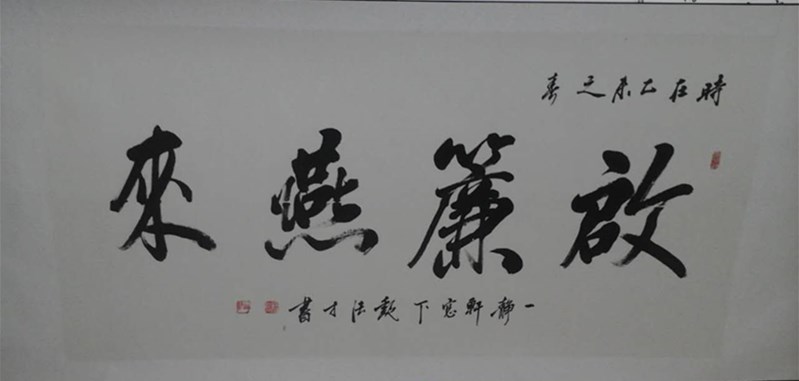 時在乙未之春
啟簾燕來
一靜軒窓下龔法才書